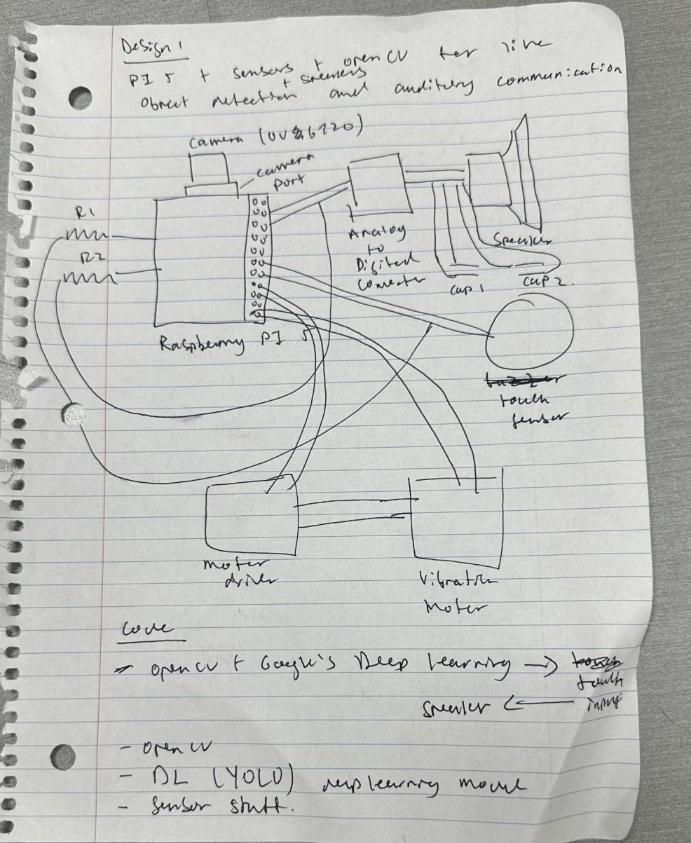 Design 1
PI 5 + sensors + openCV for live
+ speakers
Object detection and auditory communication
camera (
camera
port
R1
R2
Analog
to
Digital
Converter
Speaker
cap 1
cap 2
Raspberry PI 5
buzzer
touch
sensor
motor
driver
Vibration
Motor
Code
openCV + Google's Deep learning →
touch
input
speaker ←
- openCV
- DL (YOLO) deep learning model
- sensor stuff.